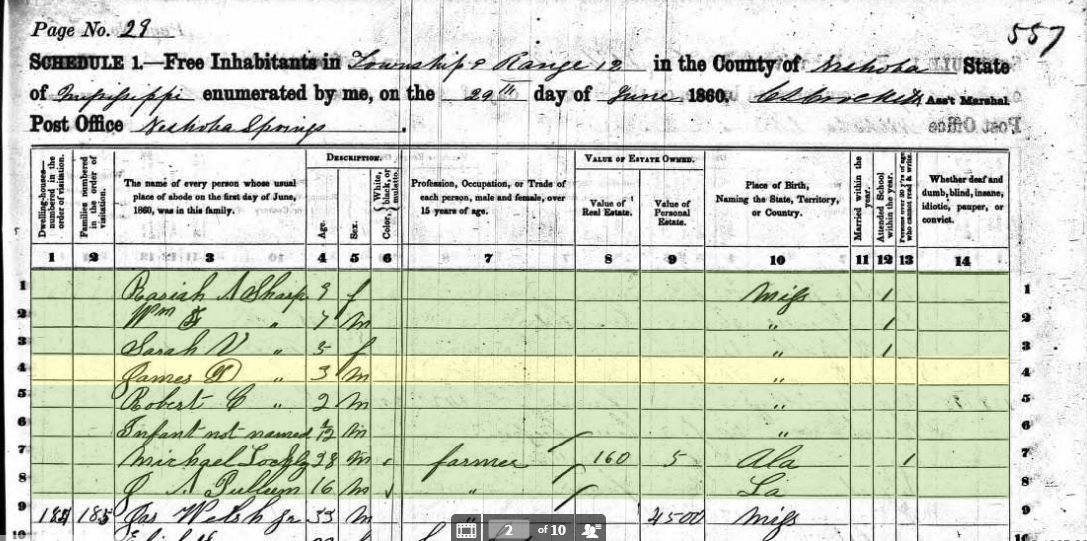 Page No. 29
557
SCHEDULE 1.—Free Inhabitants in Township & Range 12 in the County of Neshoba State
of Mississippi enumerated by me, on the 29th day of June 1860. Ass't Marshal.
Post Office Neshoba Springs.
Post Office
DESCRIPTION. VALUE OF ESTATE OWNED.
Dwelling-houses—numbered in the order of visitation. Families numbered in the order of visitation. The name of every person whose usual place of abode on the first day of June, 1860, was in this family. Age. Sex. Color, { White, black, or mulatto. Profession, Occupation, or Trade of each person, male and female, over 15 years of age. Value of Real Estate. Value of Personal Estate. Place of Birth, Naming the State, Territory, or Country. Married within the year. Attended School within the year. Persons over 20 y'rs of age who cannot read & write. Whether deaf and dumb, blind, insane, idiotic, pauper, or convict.
1 2 3 4 5 6 7 8 9 10 11 12 13 14
1 A Sharp 9 f Miss 1 1
2 Wm " 7 m " 1 2
3 Sarah V " 5 f " 1 3
4 James D " 3 m " 4
5 Robert C " 2 m " 5
6 Infant not named /12 m " 6
7 Michael 28 m farmer 160 5 Ala 1 7
8 A Pullum 16 m " La 8
9 184 185 Jas Welsh Jr 33 m " 4500 Miss 9
10 10
2 of 10